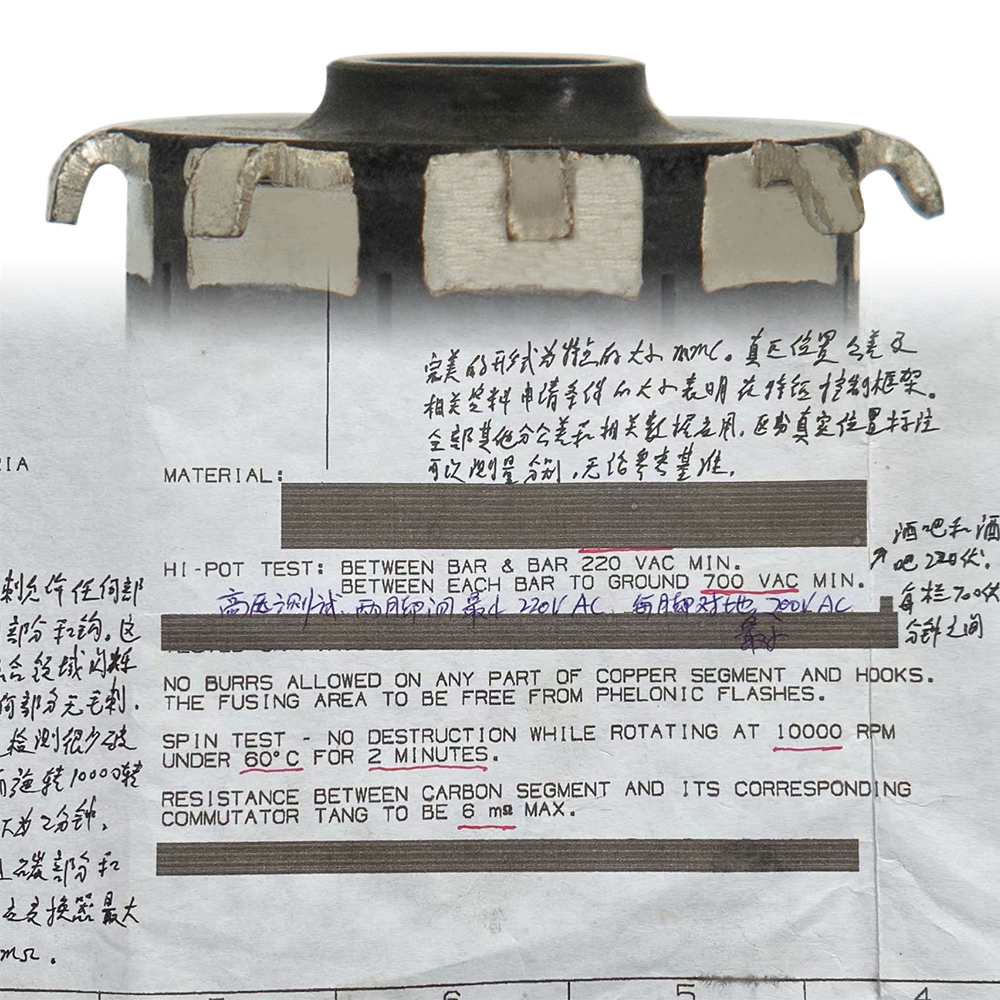 完美的形式为特点的大小mmc。真正位置公差及
相关资料申请条件的大小表明在特征控制框架。
全部其他分公差和相关数据应用,区为真实位置标注
可以测量分别,无论参考基准。
IA
MATERIAL:
HI-POT TEST: BETWEEN BAR & BAR 220 VAC MIN.
BETWEEN EACH BAR TO GROUND 700 VAC MIN.
高压测试、两脚间最小220VAC, 每脚对地700VAC
最小
酒吧和酒
吧220伏.
每栏700伏
分钟之间
刺允许任何部
部分和钩。这
合领域内辉
何部分无毛刺.
检测很少破
而旋转10000转
下为2分钟,
碳部分和
变换器最大
mΩ.
NO BURRS ALLOWED ON ANY PART OF COPPER SEGMENT AND HOOKS.
THE FUSING AREA TO BE FREE FROM PHELONIC FLASHES.
SPIN TEST - NO DESTRUCTION WHILE ROTATING AT 10000 RPM
UNDER 60°C FOR 2 MINUTES.
RESISTANCE BETWEEN CARBON SEGMENT AND ITS CORRESPONDING
COMMUTATOR TANG TO BE 6 mΩ MAX.
6
5
4